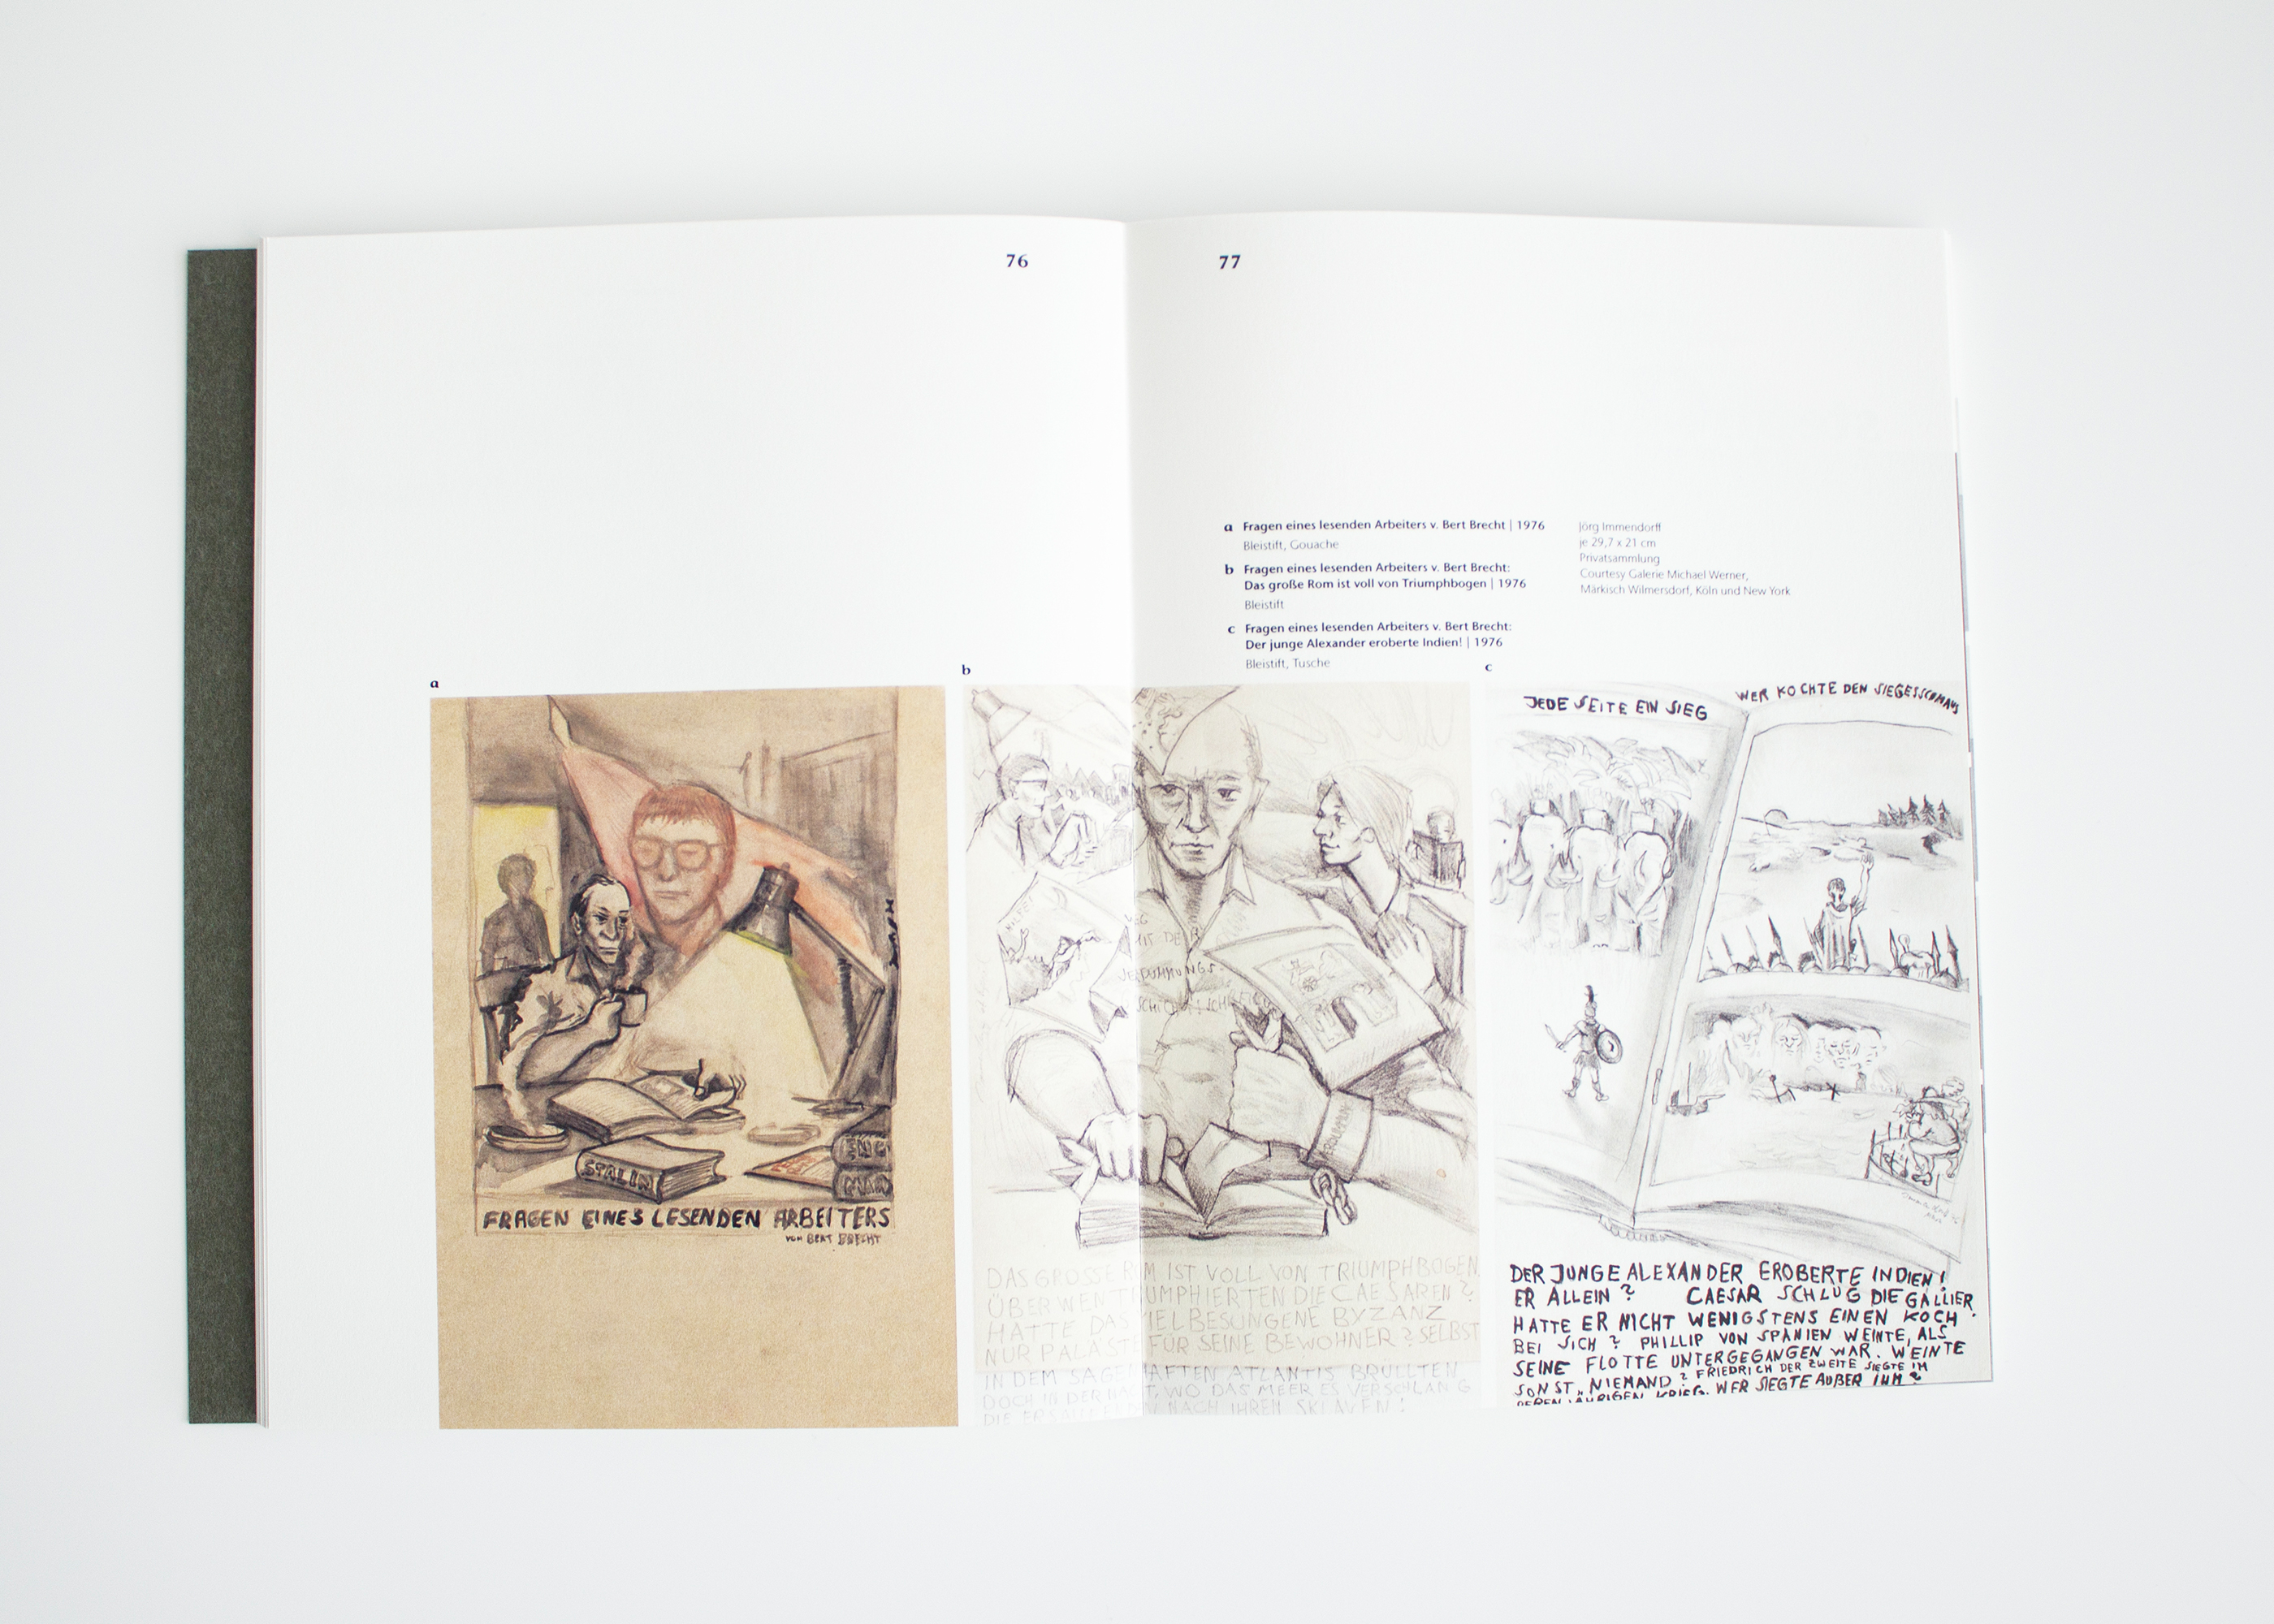 76
77
a Fragen eines lesenden Arbeiters v. Bert Brecht | 1976
Bleistift, Gouache
b Fragen eines lesenden Arbeiters v. Bert Brecht:
Das große Rom ist voll von Triumphbogen | 1976
Bleistift
c Fragen eines lesenden Arbeiters v. Bert Brecht:
Der junge Alexander eroberte Indien! | 1976
Bleistift, Tusche
Jörg Immendorff
je 29,7 x 21 cm
Privatsammlung
Courtesy Galerie Michael Werner,
Märkisch Wilmersdorf, Köln und New York
a
STALIN
FRAGEN EINES LESENDEN ARBEITERS
VON BERT BRECHT
b
HILFE!
MIT DER
DAS GROSSE ROM IST VOLL VON TRIUMPHBOGEN
ÜBER WEN TRIUMPHIERTEN DIE CAESAREN?
HATTE DAS VIELBESUNGENE BYZANZ
NUR PALÄSTE FÜR SEINE BEWOHNER? SELBST
IN DEM SAGENHAFTEN ATLANTIS BRÜLLTEN
DOCH IN DER NACHT, WO DAS MEER ES VERSCHLANG
DIE ERSAUFENDEN NACH IHREN SKLAVEN!
c
JEDE SEITE EIN SIEG
WER KOCHTE DEN SIEGESSCHMAUS
DER JUNGE ALEXANDER EROBERTE INDIEN!
ER ALLEIN? CAESAR SCHLUG DIE GALLIER.
HATTE ER NICHT WENIGSTENS EINEN KOCH
BEI SICH? PHILLIP VON SPANIEN WEINTE, ALS
SEINE FLOTTE UNTERGEGANGEN WAR. WEINTE
SONST NIEMAND? FRIEDRICH DER ZWEITE SIEGTE IM
JÄHRIGEN KRIEG. WER SIEGTE AUßER IHM?